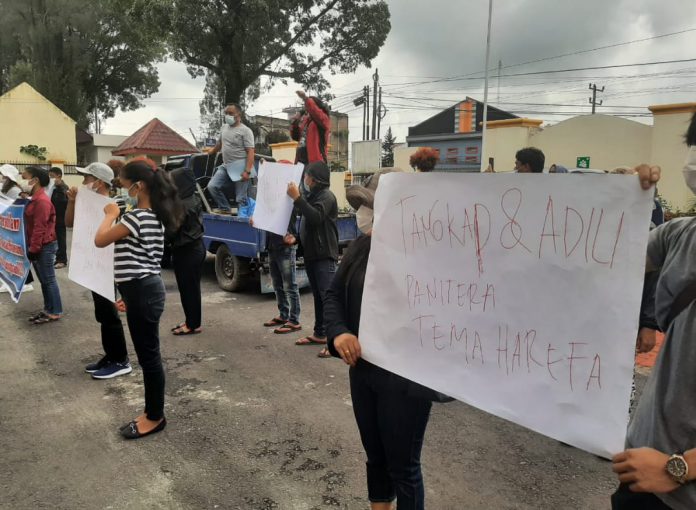 TANGKAP & ADILI
PANITERA
TEMA HAREFA